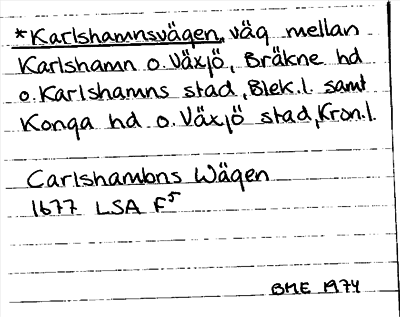 *Karlshamnsvägen, väg mellan
Karlshamn o. Växjö, Bräkne hd
o. Karlshamns stad, Blek.l. samt
Konga hd o. Växjö stad, Kron.l.
Carlshambns Wägen
1677 LSA F⁵
BME 1974